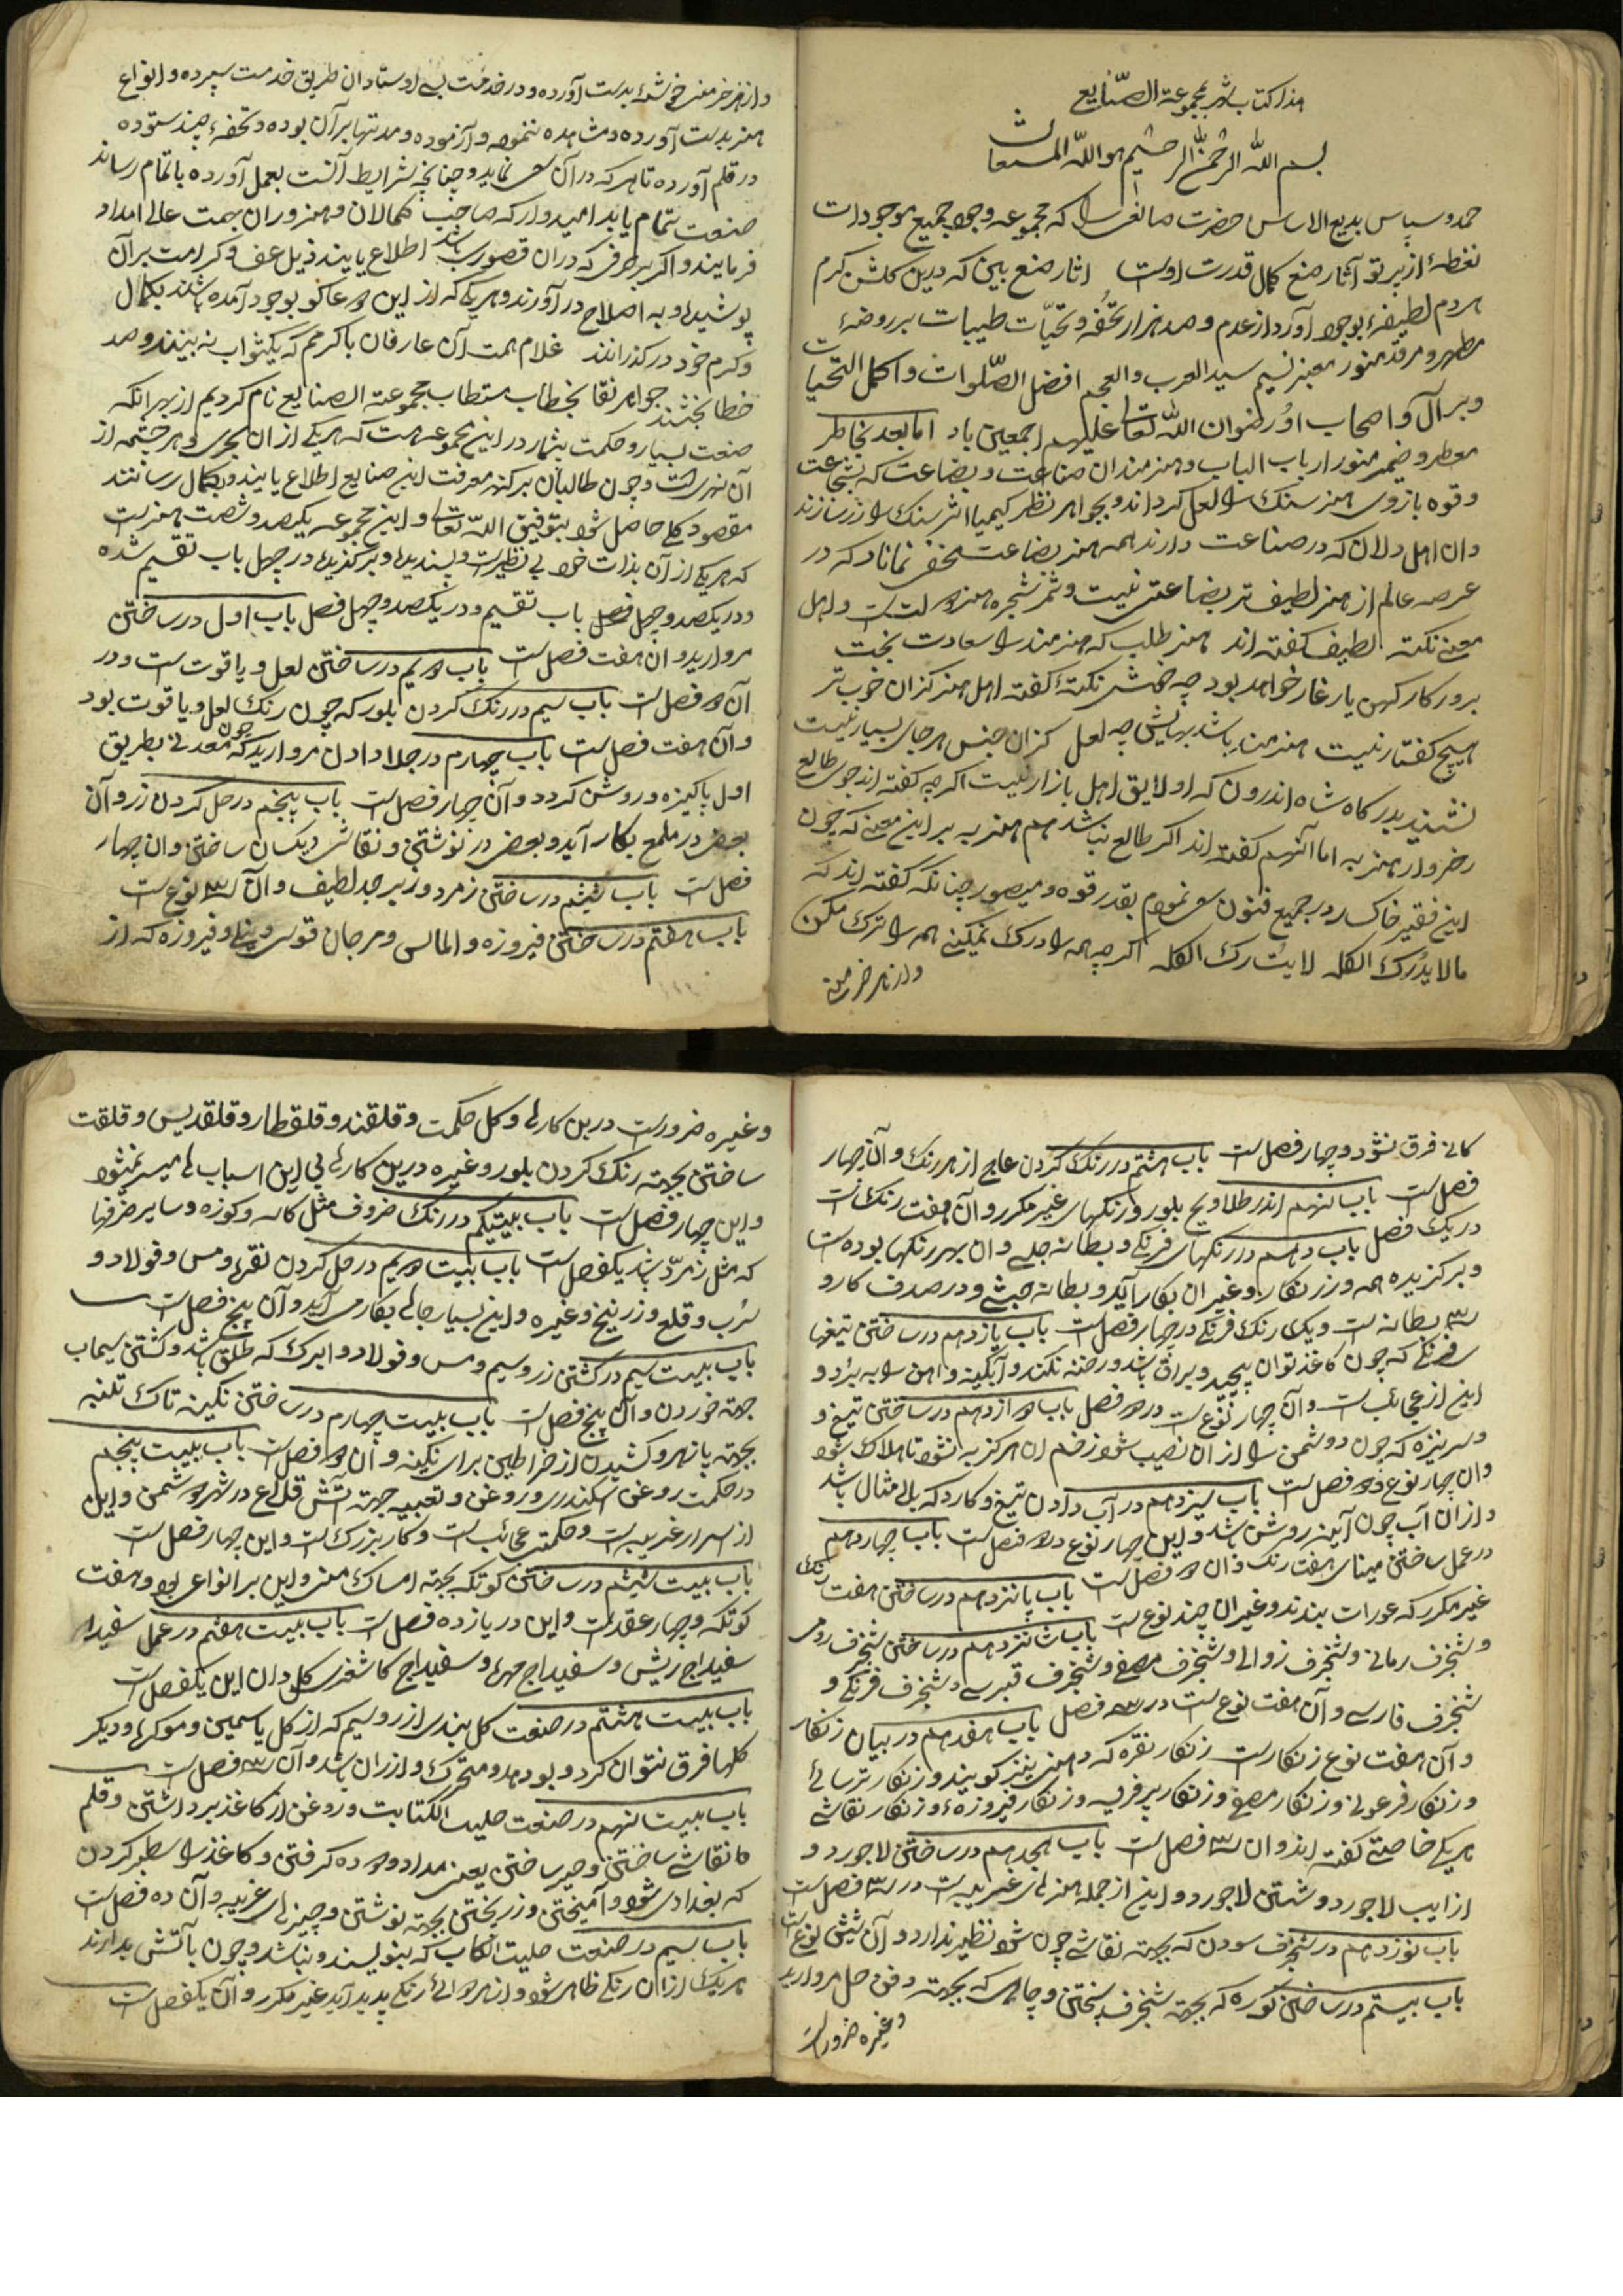 هذا کتاب مجموعة الصنایع
بسم الله الرحمن الرحیم هو الله المستعان
حمد و سپاس بدیع الاساس حضرت صانعی را که مجموعه وجود جمیع موجودات
نقطهٔ از پرتو آثار صنع کمال قدرت اوست اثار صنع بین که درین کلشن کرم
هر دم لطیفهٔ بوجود آورد از عدم و صد هزار تحفه و تحیات طیبات بر روضهٔ
مطهر و مرقد منور معنبر نسیم سید العرب والعجم افضل الصلوات واکمل التحیات
و بر آل و اصحاب او رضوان الله تعالی علیهم اجمعین باد اما بعد بخاطر
معطر و ضمیر منور ارباب الباب و هنرمندان صناعت و بضاعت که بشجاعت
و قوه بازوی هنر سنک را لعل کرداند و بجواهر نظر کیمیا اثر سنک را زر سازند
و ان اهل دلان که در صناعت دارند همه هنر بضاعت مخفی نماناد که در
عرصه عالم از هنر لطیف تر بضاعتی نیست و ثمر شجره هنر دولتست و اهل
معنی نکته لطیف کفته اند هنر طلب که هنرمند را سعادت بخت
بروز کار کهن یار غار خواهد بود چه خوش نکتهٔ کفته اهل هنر کزان خوب تر
هیچ کفتار نیست هنرمند باشد بهایش چه لعل کزان جنس هر جای بسیار نیست
نشیند بدرکاه شاه اندرون که او لایق اهل بازار نیست اکرچه کفته اند جوی طالع
ز خروار هنر به اما آنهم کفته اند اکر طالع نباشد هم هنر به بر این معنی که چون
این فقیر خاکسار در جمیع فنون سعی نمودم بقدر قوه و میسور چنانکه کفته اند که
مالا یدرک الکله لا یترک الکله اکرچه همه را درک نمیکنی همه را ترک مکن
و از هر خرمن
و از هر خرمن خوشهٔ بدست آورده و در خدمت بسی اوستادان طریق خدمت سپرده و انواع
هنر بدست آورده و مشاهده نموده و آزموده و مدتها بر آن بوده و تحفهٔ چند ستوده
در قلم آورده تا هر که در آن سعی نماید و چنانچه شرایط آنست بعمل آورده باتمام رساند
صنعت تمام یابد امیدوار که صاحب کمالان و هنروران بهمت عالی امداد
فرمایند و اکر بر حرفی که در ان قصوری باشد اطلاع یابند ذیل عفو و کرامت بر آن
پوشیده و به اصلاح در آورند و هر یکی که از این دعاکو بوجود آمده باشد بکمال
و کرم خود در کذرانند غلام همت آن عارفان با کرمم که یکثواب به بینند و صد
خطا بخشند جواهر نقا بخطاب مستطاب مجموعة الصنایع نام کردیم از بهر انکه
صنعت بسیار و حکمت بیشمار در این مجموعه هست که هر یکی از ان بحری و هر چشمه از
آن نهریست و چون طالبان بر کنه معرفت این صنایع اطلاع یابند و بکمال رسانند
مقصود کلی حاصل شود بتوفیق الله تعالی و این مجموعه یکصد و شصت هنر است
که هر یکی از آن بذات خود بی نظیر است و پسندیده و برکزیده در چهل باب تقسیم شده
و در یکصد و چهل فصل باب تقسیم و در یکصد و چهل فصل باب اول در ساختن
مروارید و ان هفت فصل است باب دویم در ساختن لعل و یاقوت است و در
آن دو فصل است باب سیم در رنک کردن بلور که چون رنک لعل و یاقوت بود
و آن هفت فصل است باب چهارم در جلا دادن مروارید که چون معدنی بطریق
اول پاکیزه و روشن کردد و آن چهار فصل است باب پنجم در حل کردن زر و آن
بعضی در ملمع بکار آید و بعضی در نوشتن و نقاشی یکسان ساختن و ان چهار
فصل است باب ششم در ساختن زمرد و زبرجد لطیف و آن سه نوع است
باب هفتم در ساختن فیروزه و الماس و مرجان قوسی و فیروزه که از
کانی فرق نشود و چهار فصل است باب هشتم در رنک کردن عاج از هر رنک و آن چهار
فصل است باب نهم اندر طلاویح بلور و رنکهای غیر مکرر و آن هفت رنک است
در یک فصل باب دهم در رنکهای فرنکی و بطانه جلبی و ان بهر رنکها بوده است
و برکزیده همه و زرنکار و غیر ان بکار آید و بطانه حبشی و در صدف کارو
سه بطانه است و یک رنک فرنکی در چهار فصل است باب یازدهم در ساختن تیغها
فرنکی که چون کاغذ توان پیچید و بران باشد و رخنه نکند و آبکینه و اهن را به برد و
این از عجایب است و آن چهار نوع است در دو فصل باب دوازدهم در ساختن تیغ و
سرنیزه که چون دوشمن را از ان نصیب شود زخم ان هرکز به نشود تا هلاک شود
و ان چهار نوع دو فصل است باب سیزدهم در آب دادن تیغ و کارد که بی مثال باشد
و از ان آب چون آینه روشن باشد و این چهار نوع دو فصل است باب چهاردهم
در عمل ساختن مینای هفت رنک و ان دو فصل است باب پانزدهم در ساختن هفت رنک
غیر مکرر که عورات بندند و غیر ان چند نوع است باب شانزدهم در ساختن شنجرف رومی
و شنجرف رمانی و شنجرف زوالی و شنجرف مصفی و شنجرف قبرسی و شنجرف فرنکی و
شنجرف فارسی و آن هفت نوع است در سه فصل باب هفدهم در بیان زنکار
و آن هفت نوع زنکار است زنکار نقره که دهنی نیز کویند و زنکار ترسائی
و زنکار فرعونی و زنکار مصفی و زنکار پرفریب و زنکار فیروزهٔ و زنکار نقاشی
هر یکی خاصیتی کفته اند و ان سه فصل است باب هجدهم در ساختن لاجورد و
ازابیب لاجورد و شستن لاجورد و این از جمله هنرهای غریب است در سه فصل است
باب نوزدهم در شنجرف سودن که بجهته نقاشی چون شود نظیر ندارد و آن شش نوع است
باب بیستم در ساختن کوره که بجهته شنجرف پختن و چاهی که بجهته دفن حل مروارید
و غیره ضرور است
و غیره ضرور است درین کارها و کل حکمت و قلقند و قلقطار و قلقدیس و قلقت
ساختن بجهته رنک کردن بلور و غیره درین کارها بی این اسباب ها میسر نمیشود
و این چهار فصل است باب بیستیکم در رنک ضروف مثل کاسه و کوزه و سایر ظرفها
که مثل زمرد باشد یکفصل است باب بیست دویم در حل کردن نقره و مس و فولاد و
سرب و قلع و زرنیخ و غیره و این بسیار جاها بکار می آید و آن پنج فصل است
باب بیست سیم در کشتن زر و سیم و مس و فولاد و ابرک که طلق باشد و کشتن سیماب
جهة خوردن و آن پنج فصل است باب بیست چهارم در ساختن نکین تاک تلنبه
بجهته پازهر و کشیدن از خراطین برای نکینه و آن دو فصل است باب بیست پنجم
در حکمت روغن اسکندری و روغن و تعبیه جهته آتش قلاع در شهر دشمن و این
از اسرار غریبه است و حکمت عجائب است و کار بزرک است و این چهار فصل است
باب بیست ششم در ساختن کوتکه بجهته امساک منی و این بر انواعی بود و هفت
کوتکه و چهار عقد است و این در یازده فصل است باب بیست هفتم در عمل سفیداب
سفیداج ریش و سفیداج مهره و سفیداج کاشغری کل و ان این یکفصل است
باب بیست هشتم در صنعت کل بندی از زر و سیم که از کل یاسمین و موکره و دیکر
کلها فرق نتوان کرد و بو دهد و متحرک و لرزان باشد و آن سه فصل است
باب بیست نهم در صنعت حلیت الکتابت و روغن از کاغذ برداشتن و قلم
ها نقاشی ساختن و حبر ساختن یعنی مداد و دوده کرفتن و کاغذ را سطبر کردن
که بغدادی شود و آمیختن و زر پختن بجهته نوشتن و چیزهای غریب و آن ده فصل است
باب سیم در صنعت حلیت الکتاب که بنویسند و نباشد و چون بآتش بدارند
هر یک از ان رنکی ظاهر شود و از هر دوائی رنکی پدید آید غیر مکرر و آن یکفصل است